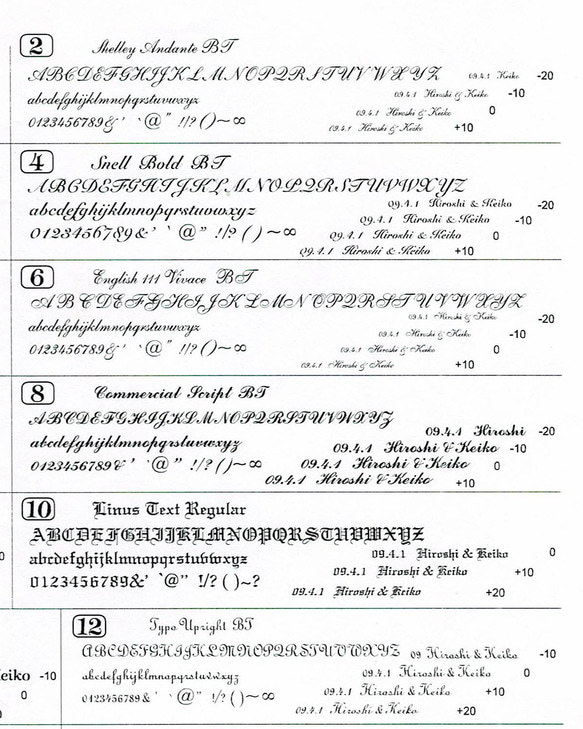 2 Shelley Andante BT
ABCDEFGHIJKLMNOPQRSTUVWXYZ 09.4.1 Keiko -20
abcdefghijklmnopqrstuvwxyz 09.4.1 Hiroshi & Keiko -10
0123456789&' ` @" !/? ( ) ~ ∞ 09.4.1 Hiroshi & Keiko 0
09.4.1 Hiroshi & Keiko +10
4 Snell Bold BT
ABCDEFGHIJKLMNOPQRSTUVWXYZ
09.4.1 Hiroshi & Keiko -20
abcdefghijklmnopqrstuvwxyz 09.4.1 Hiroshi & Keiko -10
0123456789&' ` @" !/? ( ) ~ ∞ 09.4.1 Hiroshi & Keiko 0
09.4.1 Hiroshi & Keiko +10
6 English 111 Vivace BT
ABCDEFGHIJKLMNOPQRSTUVWXYZ
09.4.1 Hiroshi & Keiko -20
abcdefghijklmnopqrstuvwxyz 09.4.1 Hiroshi & Keiko -10
0123456789&' ` @" !/? ( ) ~ ∞ 09.4.1 Hiroshi & Keiko 0
09.4.1 Hiroshi & Keiko +10
8 Commercial Script BT
ABCDEFGHIJKLMNOPQRSTUVWXYZ
09.4.1 Hiroshi -20
abcdefghijklmnopqrstuvwxyz 09.4.1 Hiroshi & Keiko -10
0123456789&' ` @" !/? ( ) ~ ∞ 09.4.1 Hiroshi & Keiko 0
09.4.1 Hiroshi & Keiko +10
10 Linus Text Regular
ABCDEFGHIJKLMNOPQRSTUVWXYZ
0 abcdefghijklmnopqrstuvwxyz 09.4.1 Hiroshi & Keiko 0
0123456789&' `@" !/? ( )~? 09.4.1 Hiroshi & Keiko +10
09.4.1 Hiroshi & Keiko +20
12 Typo Upright BT
ABCDEFGHIJKLMNOPQRSTUVWXYZ 09 Hiroshi & Keiko -10
eiko -10 abcdefghijklmnopqrstuvwxyz 09.4.1 Hiroshi & Keiko 0
0 0123456789& ' ` @" !/? ( ) ~ ∞ 09.4.1 Hiroshi & Keiko +10
09.4.1 Hiroshi & Keiko +20